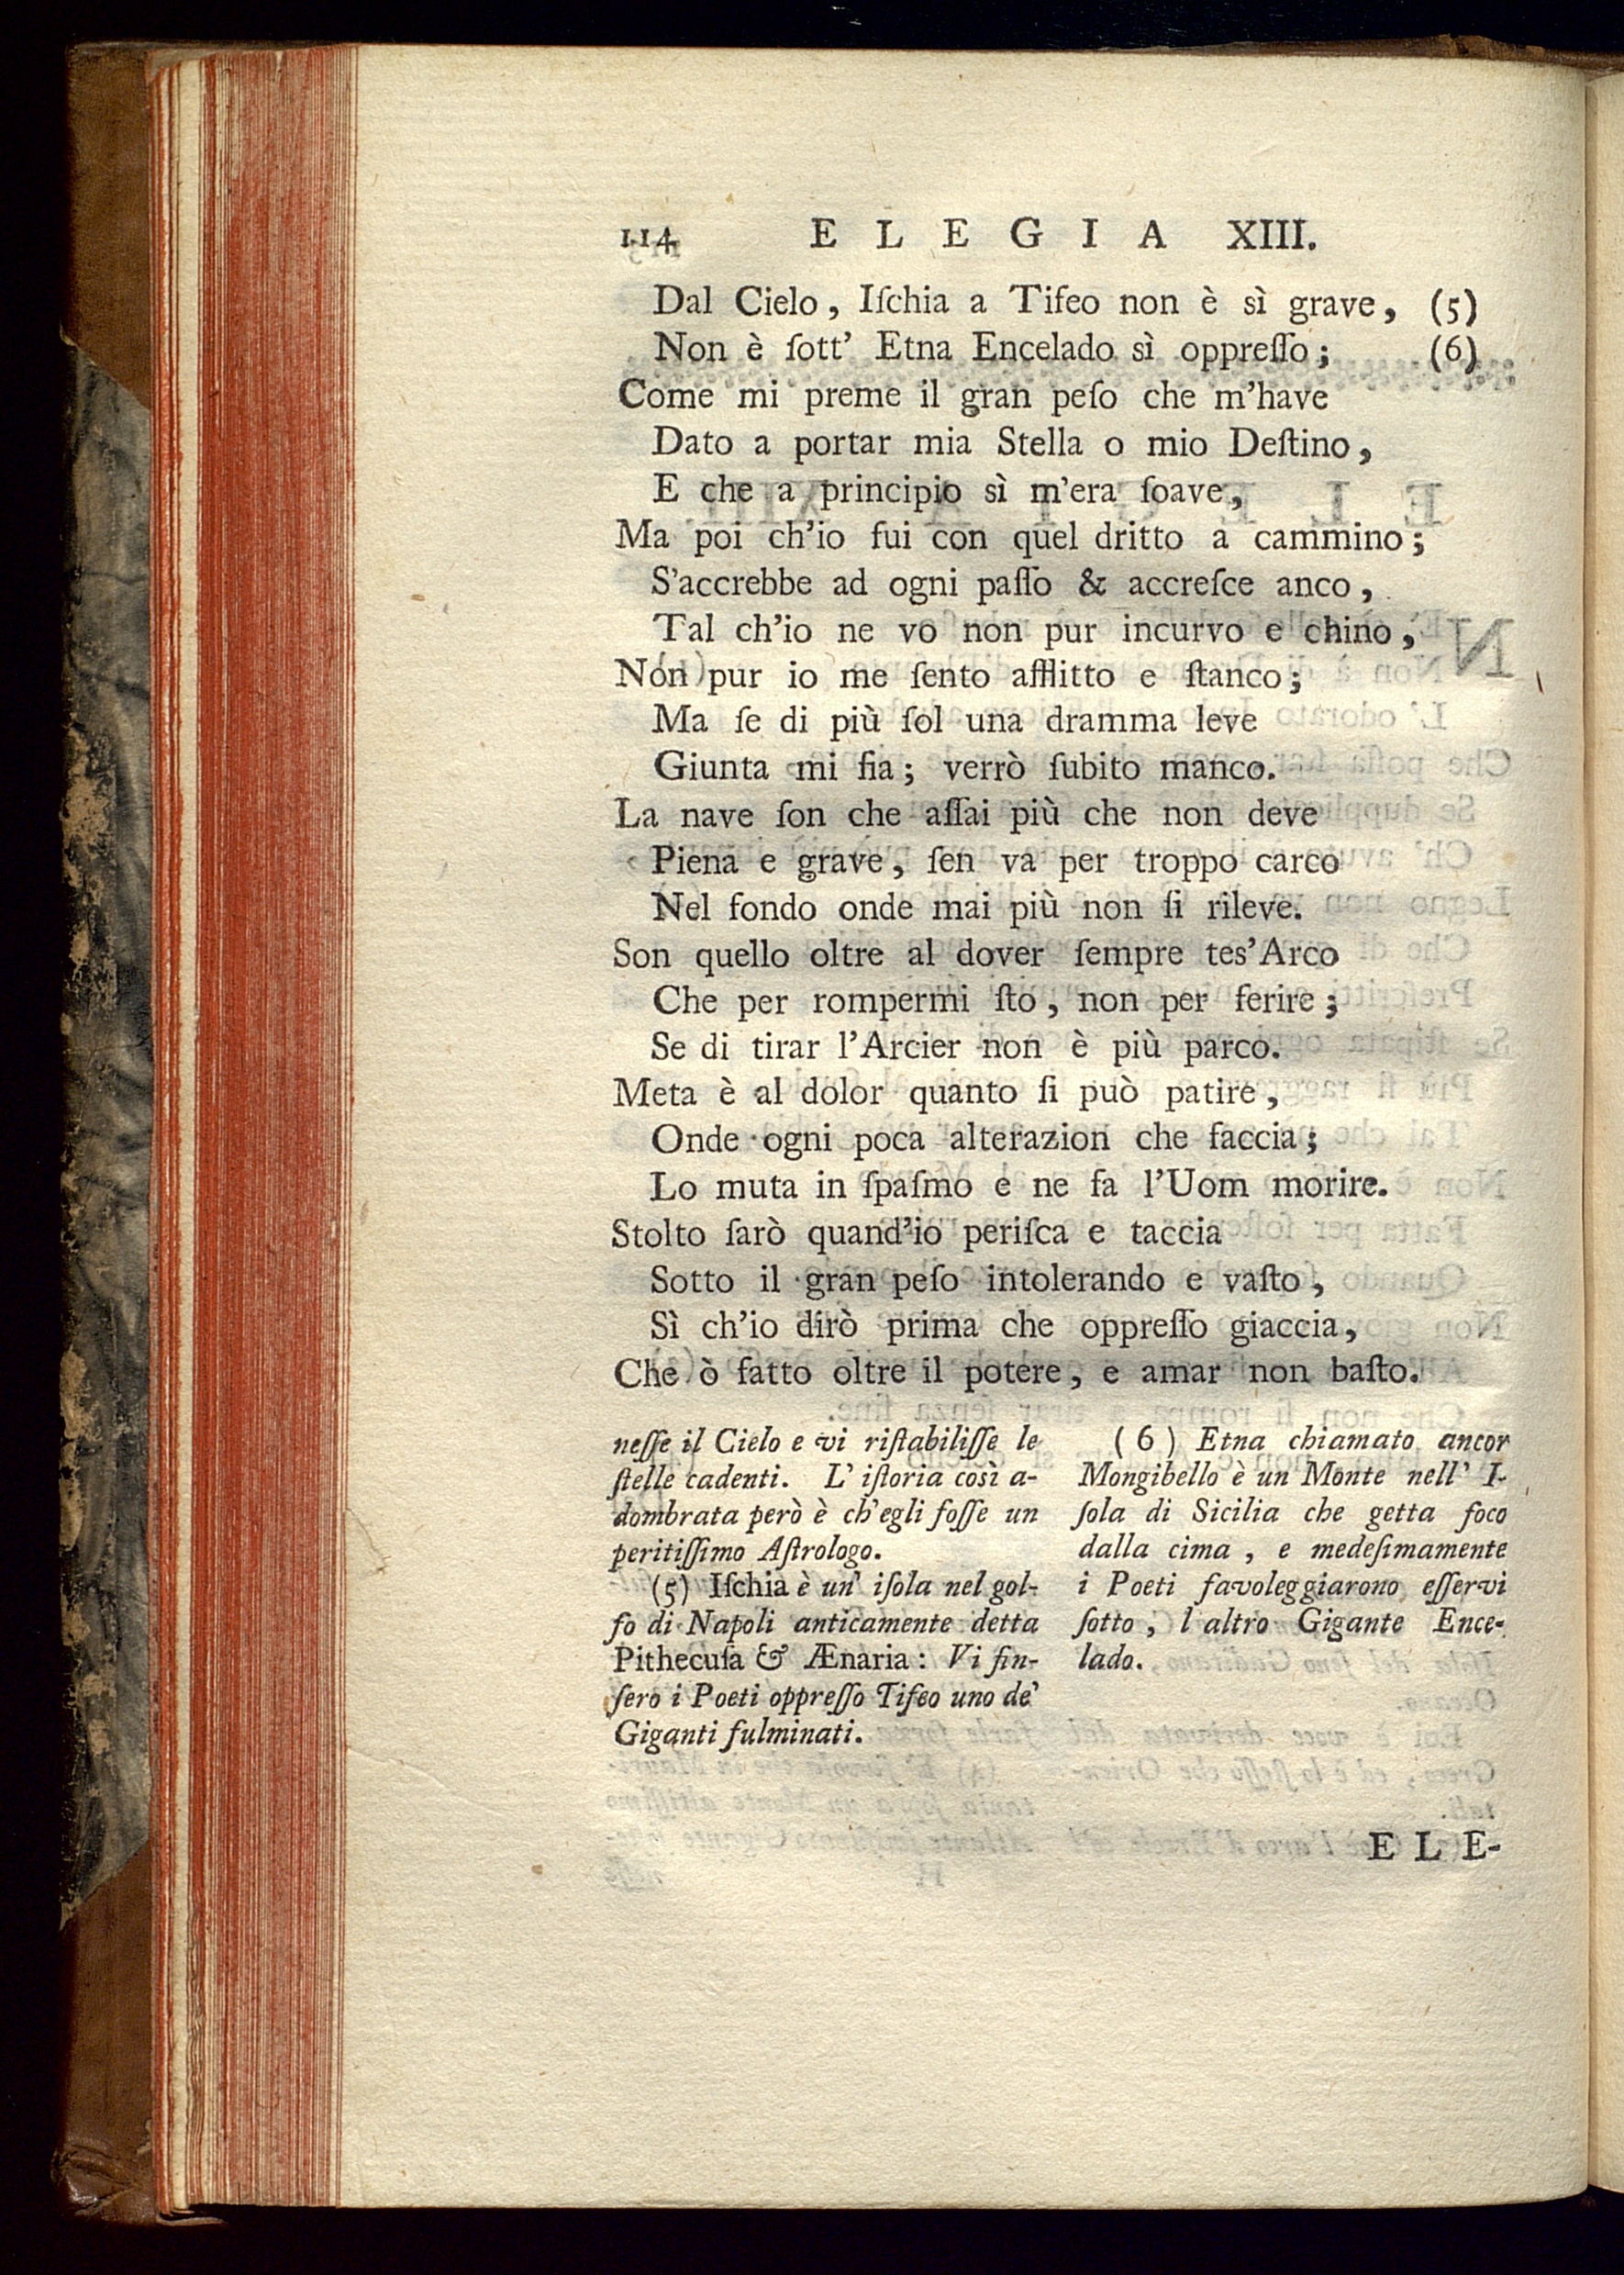 114 ELEGIA XIII.
Dal Cielo, Iſchia a Tifeo non è sì grave, (5)
Non è ſott' Etna Encelado sì oppreſſo; (6)
Come mi preme il gran peſo che m'have
Dato a portar mia Stella o mio Deſtino,
E che a principio sì m'era ſoave,
Ma poi ch'io fui con quel dritto a cammino;
S'accrebbe ad ogni paſſo & accreſce anco,
Tal ch'io ne vo non pur incurvo e chino,
Non pur io me ſento afflitto e ſtanco;
Ma ſe di più ſol una dramma leve
Giunta mi fia; verrò ſubito manco.
La nave ſon che aſſai più che non deve
Piena e grave, ſen va per troppo carco
Nel fondo onde mai più non ſi rileve.
Son quello oltre al dover ſempre tes'Arco
Che per rompermi ſto, non per ferire;
Se di tirar l'Arcier non è più parco.
Meta è al dolor quanto ſi può patire,
Onde ogni poca alterazion che faccia;
Lo muta in ſpaſmo e ne fa l'Uom morire.
Stolto ſarò quand'io periſca e taccia
Sotto il gran peſo intolerando e vaſto,
Sì ch'io dirò prima che oppreſſo giaccia,
Che ò fatto oltre il potere, e amar non baſto.
neſſe il Cielo e vi riſtabiliſſe le
ſtelle cadenti. L' iſtoria così a-
dombrata però è ch'egli foſſe un
peritiſſimo Aſtrologo.
(5) Iſchia è un' iſola nel gol-
fo di Napoli anticamente detta
Pithecuſa & Ænaria: Vi fin-
ſero i Poeti oppreſſo Tifeo uno de'
Giganti fulminati.
(6) Etna chiamato ancor
Mongibello è un Monte nell' I-
ſola di Sicilia che getta foco
dalla cima, e medeſimamente
i Poeti favoleggiarono eſſervi
ſotto, l altro Gigante Ence-
lado.
ELE-